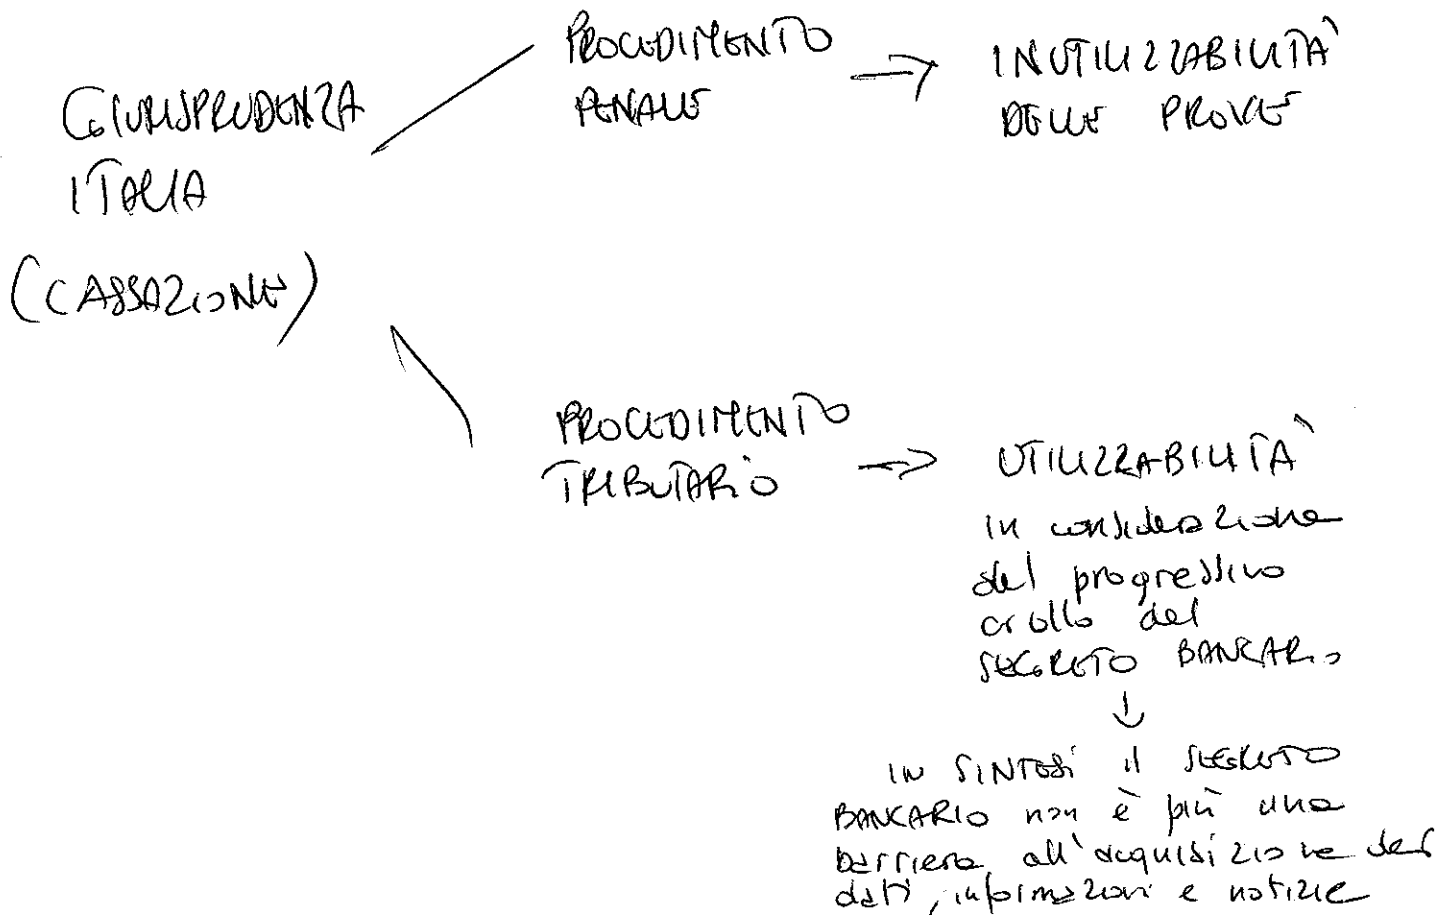 GIURISPRUDENZA
ITALIA
(CASSAZIONE)
PROCEDIMENTO
PENALE
→ INUTILIZZABILITÀ
DELLE PROVE
PROCEDIMENTO
TRIBUTARIO
→ UTILIZZABILITÀ
in considerazione
del progressivo
crollo del
SEGRETO BANCARIO
↓
IN SINTESI il SEGRETO
BANCARIO non è più una
barriera all'acquisizione dei
dati, informazioni e notizie